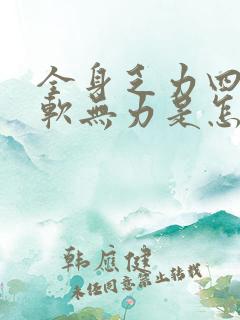 全身乏力四
軟無力是怎
韩应健
未经同意禁止转载